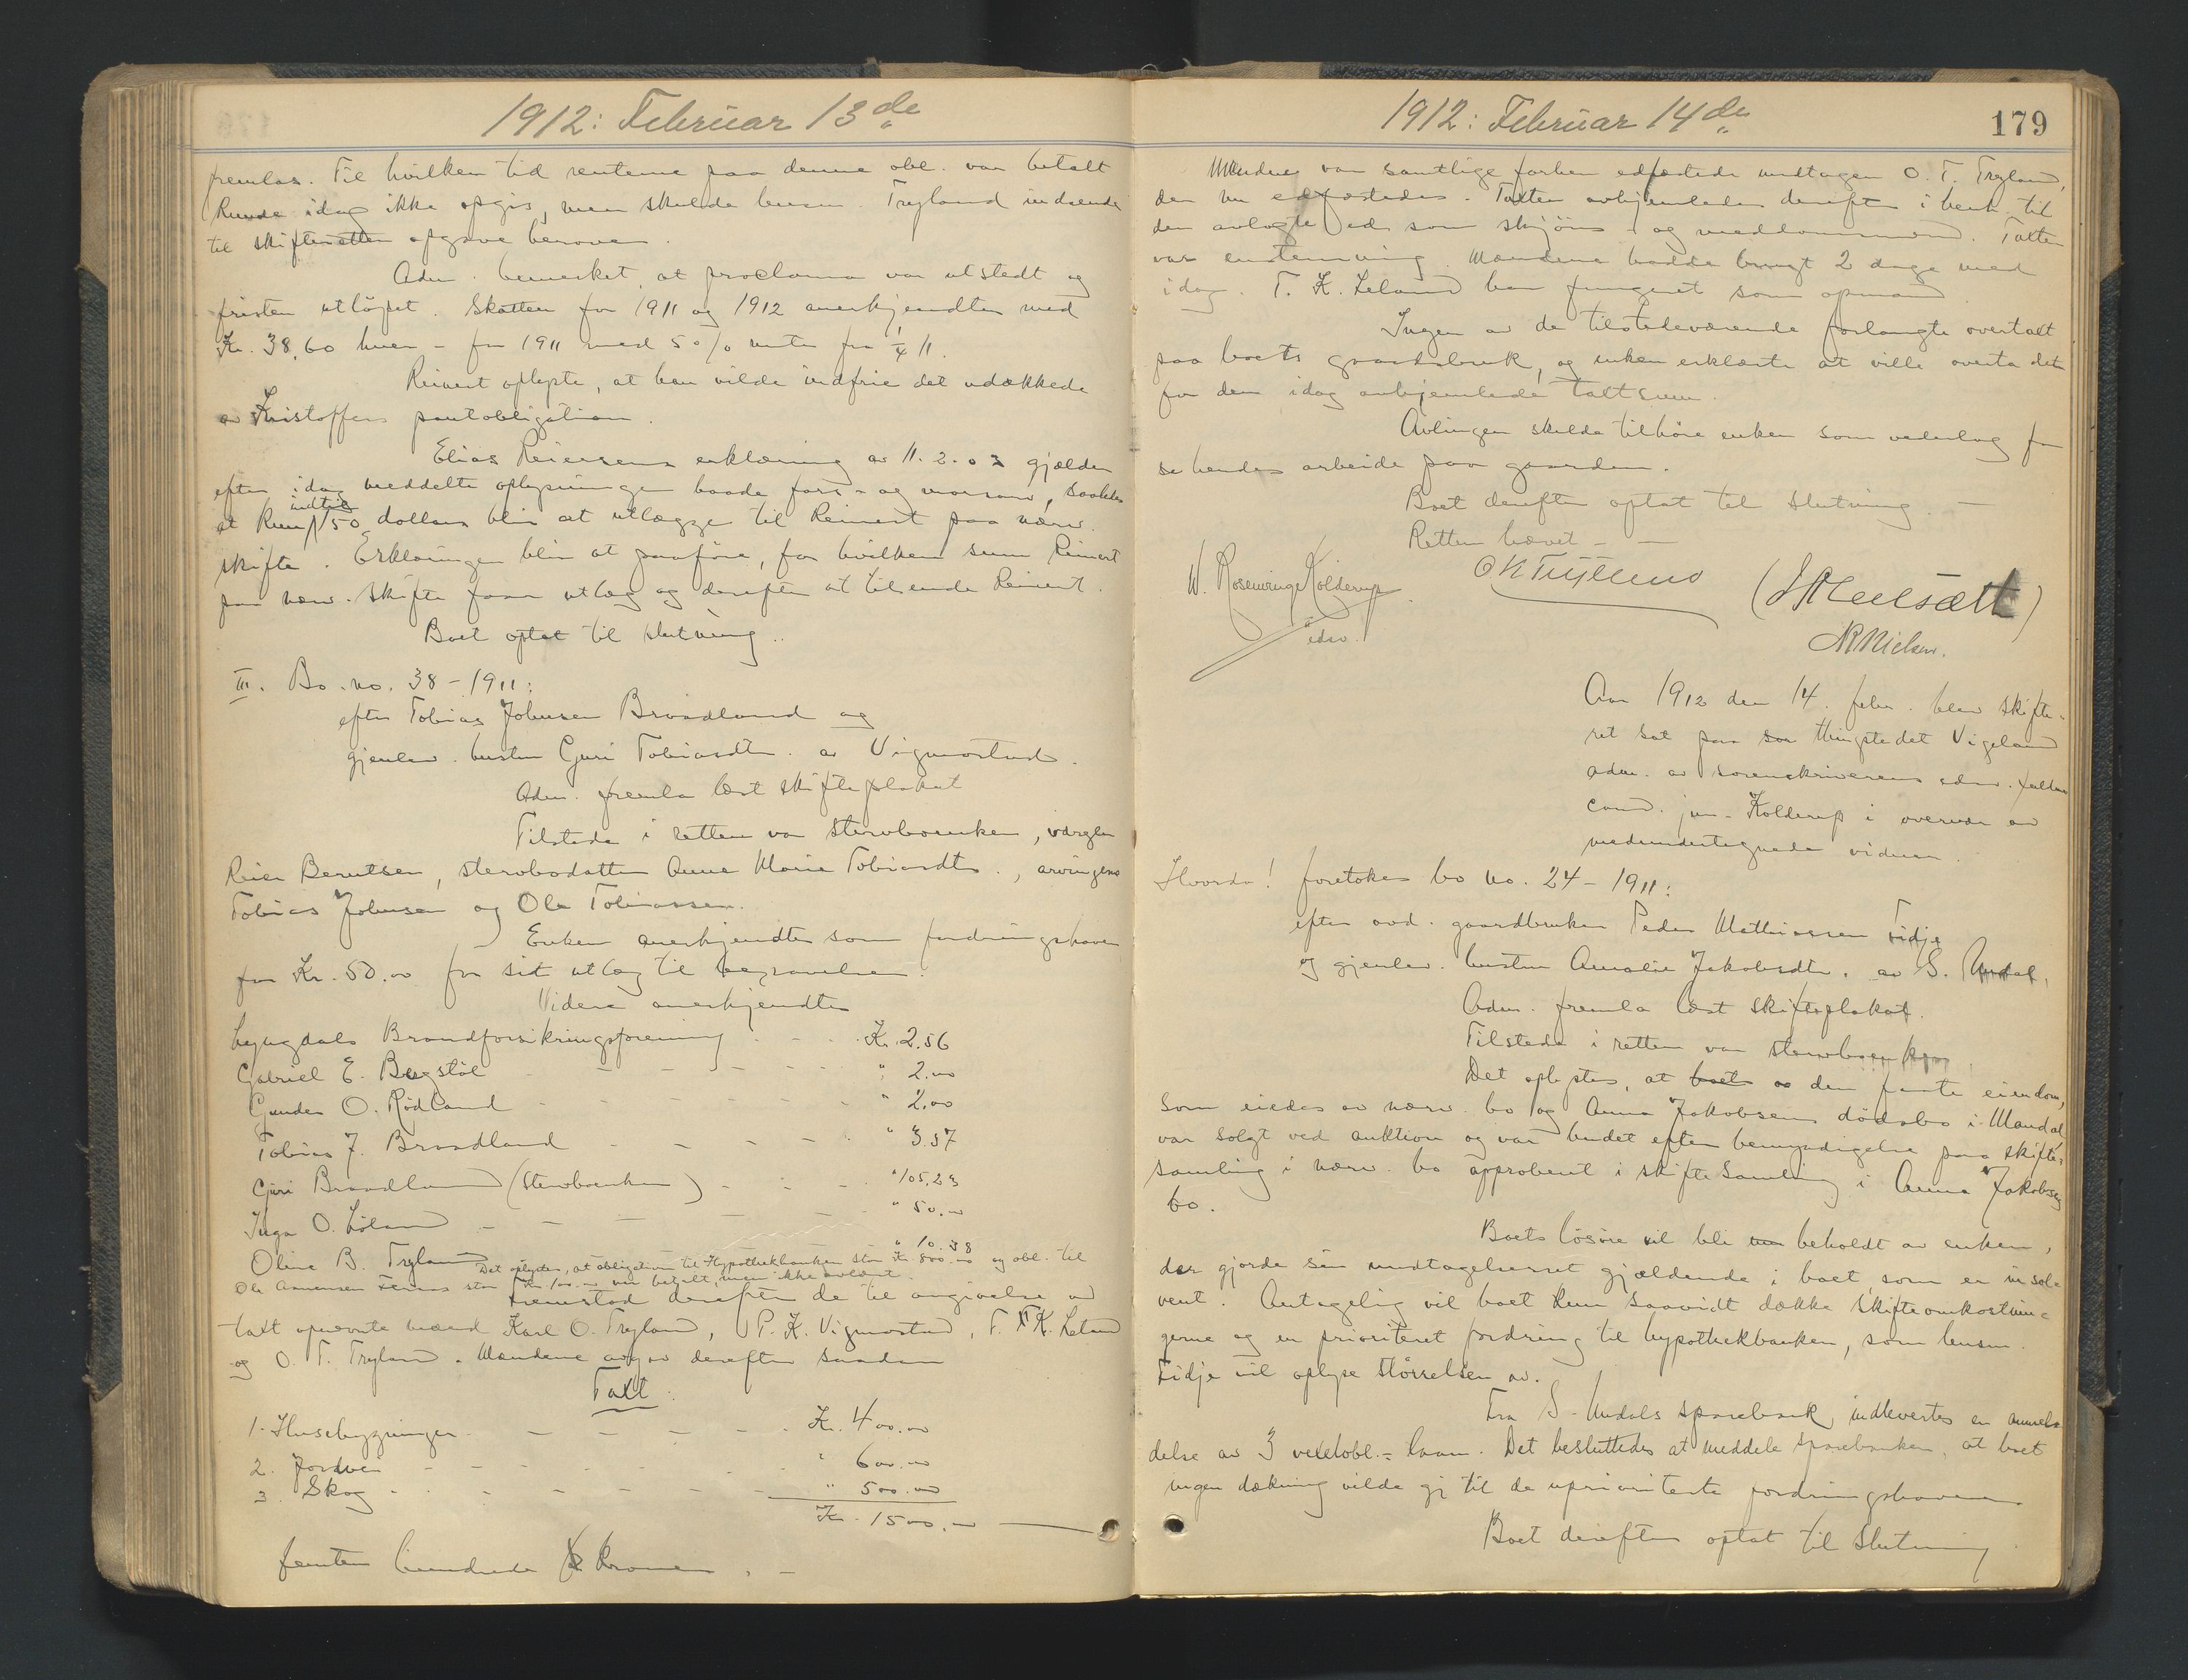 1912: Februar 13de
fremlas. Til hvilken tid renterne paa denne obl. var betalt
kunde idag ikke opgis, men skulde lensm. Tryland indsende
til skifteretten opgave herover.
Adm. bemerket, at proclama var utstedt og
fristen utløpet. Skatten for 1911 og 1912 anerkjendtes med
Kr. 38,60 hver - for 1911 med 5 % rente fra 1/4 11.
Reinert oplyste, at han vilde indfrie det udækkede
av Kristoffers pantobligation.
Elias Reiersens erklæring av 11.2.03 gjælder
efter idag meddelte oplysninger baade fars- og morsarv, saaledes
at kun indtil 150 dollars blir at utlægge til Reinert paa nærv.
skifte. Erklæringen blir at paaføre, for hvilken sum Reinert
paa nærv. skifte faar utlæg og derefter at tilsende Reinert.
Boet optat til slutning..
III. Bo. no. 38 - 1911:
efter Tobias Johnsen Braadland og
gjenlev. hustru Guri Tobiasdtr. av Vigmostad.
Adm. fremla læst skifteplakat
Tilstede i retten var stervboenken, værgen
Reier Berntsen, stervbodatter Anne Marie Tobiasdtr., arvingerne
Tobias Johnsen og Ole Tobiassen.
Enken anerkjendtes som fordringshaver
for Kr. 50.00 for sit utlæg til begravelsen.
Videre anerkjendtes
Lyngdals Brandforsikringsforening - - - Kr. 2.56
Gabriel E. Bugstøl - - - - - " 2.00
Gunder O. Rødland - - - - - " 2.00
Tobias J. Braadland - - - - " 3.57
Guri Braadland (stervboenken) - - - " 105.23
Inga O. Løland - - - - - " 50.00
Oline B. Tryland " 10.38
Det oplystes, at obligation til Hypothekbanken stor Kr. 800.00 og obl. til
Ole Aanensen stor Kr. 100.00 var betalt, men ikke avlæst.
Fremstod derefter de til avgivelse av
takt opnævnte mænd Karl O. Tryland, P. K. Vigmostad, T. K. Leland
og O. T. Tryland. Mændene avgav derefter saadan
Takt:
1. Husebygninger - - - - - Kr. 400.00
2. Jordvei - - - - - - " 600.00
3. Skog - - - - - - " 500.00
Kr. 1500.00
femten hundrede kroner. -
1912: Februar 14de
179
Mændene var samtlige forhen edfæstede undtagen O. T. Tryland,
der nu edfæstedes. Takten avhjemledes derefter i henh. til
den avlagte ed som skjøns- og meddomsmænd. Takten
var enstemmig. Mændene hadde brugt 2 dage med
idag. T. K. Leland har fungeret som opmand.
Ingen av de tilstedeværende forlangte overtakt
paa boets gaardsbruk, og enken erklærte at ville overta det
for den idag avhjemlede taktsum.
Avlingen skulde tilhøre enken som vederlag for
hendes arbeide paa gaarden.
Boet derefter optat til slutning. -
Retten hævet - -
W. Rosenvinge Kolderup
edsv.
O K Trylland
N Nielsen.
Aar 1912 den 14. febr. blev skifte-
ret sat paa thingstedet Vigeland
adm. av sorenskriverens edsv. fuldm.
cand. jur. Kolderup i overvær av
medundertegnede vidner.
Hvorda! foretokes bo no. 24 - 1911:
efter avd. gaardbruker Peder Mathiassen Tidje
og gjenlev. hustru Amalie Jakobsdtr. av S. Undal.
Adm. fremla læst skifteplakat.
Tilstede i retten var stervboenken.
Det oplystes, at den faste eiendom,
som eiedes av nærv. bo og Anna Jakobsens dødsbo i Mandal
var solgt ved auktion og var budet efter bemyndigelse paa skifte-
samling i nærv. bo approbert i skiftesamling i Anna Jakobsens
bo.
Boets løsøre vil bli beholdt av enken,
der gjorde sin undtagelsesret gjældende i boet, som er insol-
vent. Antagelig vil boet kun saavidt dække skifteomkostnin-
gerne og en prioriteret fordring til hypothekbanken, som lensm.
Tidje vil oplyse størrelsen av.
Fra S. Undals sparebank indlevertes en anmel-
delse av 3 vexelobl.- laan. Det besluttedes at meddele sparebanken, at boet
ingen dækning vilde gi til de uprioriterte fordringshavere.
Boet derefter optat til slutning